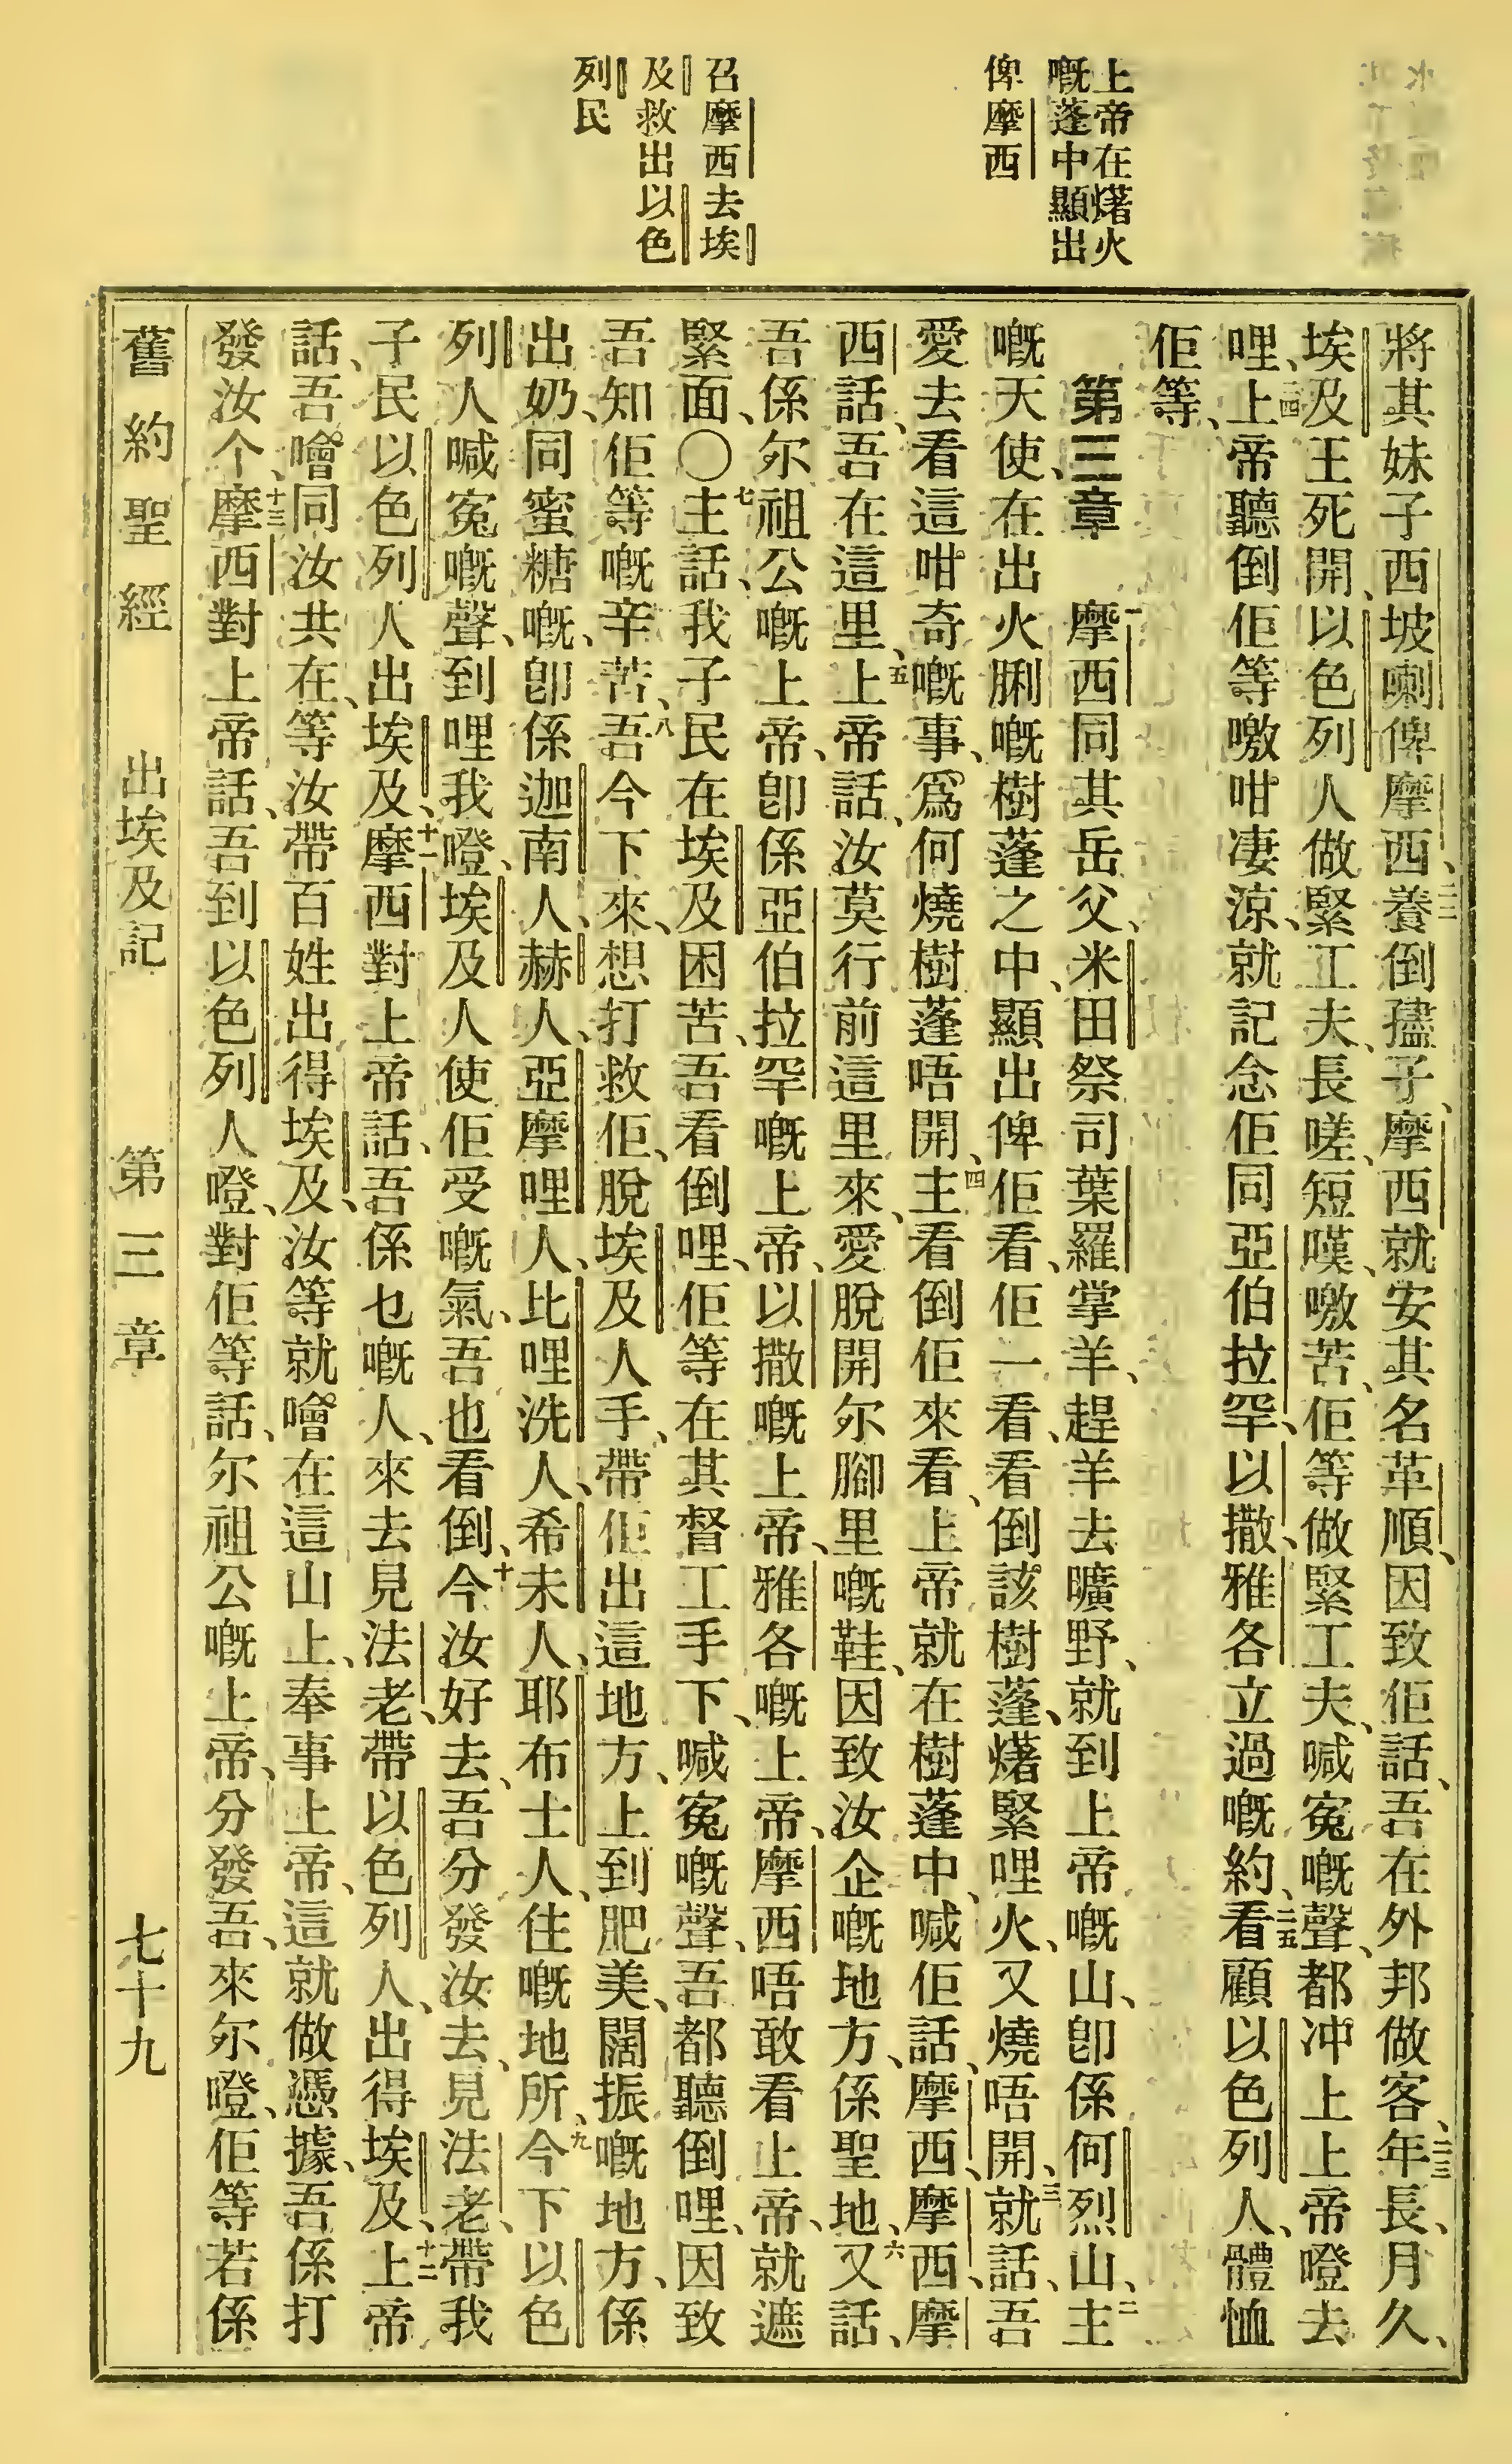 上帝在㷮火
嘅蓬中顯出
俾摩西
召摩西去埃
及救出以色
列民
將其妹子西坡喇俾摩西、二二養倒孻子、摩西就安其名革順、因致佢話、吾在外邦做客、二三年長、月久、
埃及王死開、以色列人做緊工夫、長嗟、短嘆、噭苦、佢等做緊工夫、喊寃嘅聲、都冲上上帝嘅去
哩、二四上帝聽倒佢等噭咁凄涼、就記念佢同亞伯拉罕、以撒、雅各立過嘅約、二五看顧以色列人、體恤
佢等、
第三章　一摩西同其岳父、米田祭司葉羅掌羊、趕羊去曠野、就到上帝嘅山、卽係何烈山、二主
嘅天使、在出火脷嘅樹蓬之中、顯出俾佢看、佢一看、看倒該樹蓬、㷮緊哩火、又燒唔開、三就話、吾
愛去看這咁奇嘅事、爲何燒樹蓬唔開、四主看倒佢來看、上帝就在樹蓬中、喊佢話、摩西、摩西、摩
西話、吾在這里、五上帝話、汝莫行前這里來、愛脫開尔腳里嘅鞋、因致汝企嘅地方、係聖地、六又話、
吾係尔祖公嘅上帝、卽係亞伯拉罕嘅上帝、以撒嘅上帝、雅各嘅上帝、摩西唔敢看上帝、就遮
緊面、〇七主話、我子民在埃及困苦、吾看倒哩、佢等在其督工手下、喊寃嘅聲、吾都聽倒哩、因致
吾知佢等嘅辛苦、八吾今下來、想打救佢、脫埃及人手、帶佢出這地方、上到肥美、闊振嘅地方、係
出奶、同蜜糖嘅、卽係迦南人、赫人、亞摩哩人、比哩洗人、希未人、耶布士人、住嘅地所、九今下以色
列人喊寃嘅聲、到哩我嘅、埃及人使佢受嘅氣、吾也看倒、十今汝好去、吾分發汝去、見法老、帶我
子民以色列人出埃及、十一摩西對上帝話、吾係乜嘅人、來去見法老、帶以色列人、出得埃及、十二上帝
話、吾噲同汝共在、等汝帶百姓出得埃及、汝等就噲在這山上、奉事上帝、這就做憑據、吾係打
發汝个、十三摩西對上帝話、吾到以色列人嘅、對佢等話、尔祖公嘅上帝、分發吾、來尔嘅、佢等若係
舊約聖經　出埃及記　第三章　七十九